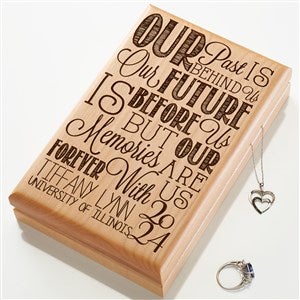 OUR Past IS
BEHIND Us
Our FUTURE
IS BEFORE Us
BUT OUR
Memories ARE
FOREVER With US
TIFFANY LYNN 20
UNIVERSITY OF ILLINOIS 24